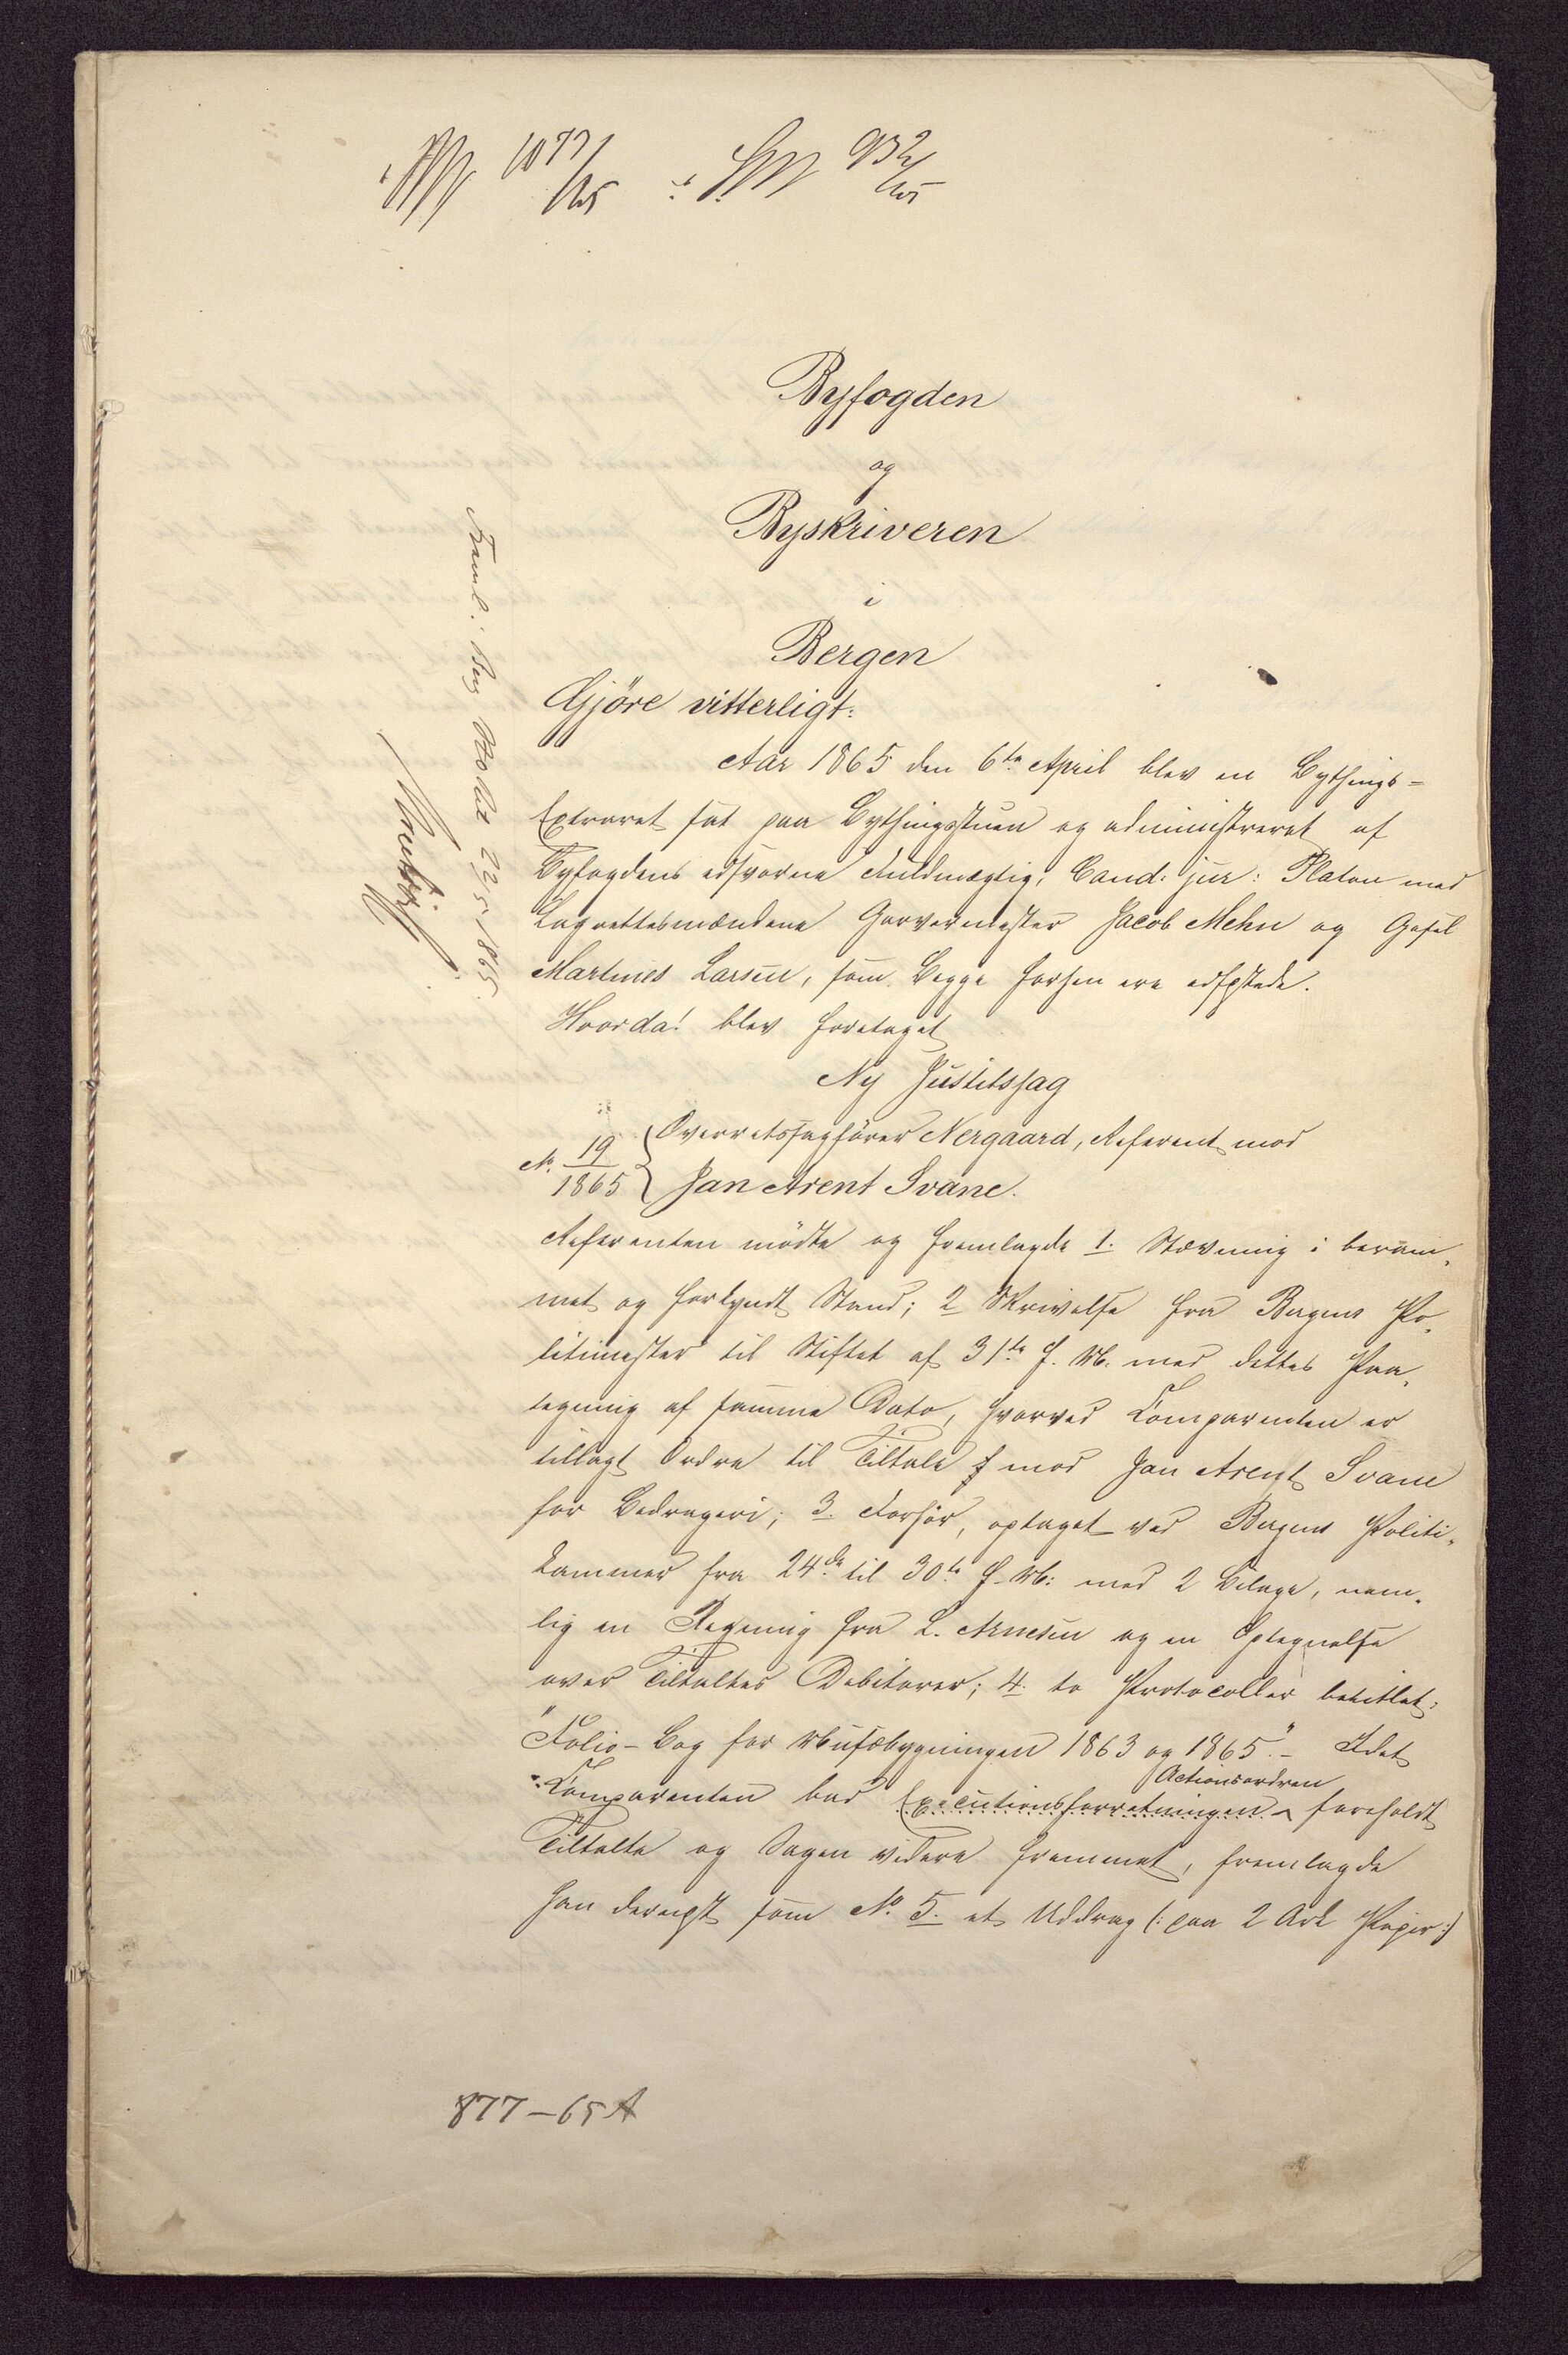 1077/65
932/65
Byfogden
og
Byskriveren
i
Bergen
Gjöre vitterligt:
Aar 1865 den 6te April blev en Bythings-
Extraret sat paa Bythingsstuen og administreret af
Byfogdens edsvorne Fuldmægtig, Cand: jur: Platou med
Lagrettesmændene Garvermester Jacob Mehn og Gesel
Martines Larsen, som begge forhen ere edfæstede.
Hvorda! blev foretaget
Ny Justitssag
No. 19/1865 { Overretssagförer Nergaard, Referent, mod
Jan Arent Svane.
Referenten mödte og fremlagde 1. Stævning i beram-
met og forkyndt Stand; 2 Skrivelse fra Bergens Po-
litimester til Stiftet af 31te f. M. med dettes Paa-
tegning af samme Dato, hvorved Comparenten er
tillagt Ordre til Tiltale f mod Jan Arent Svane
for Bedrageri; 3. Forhör, optaget ved Bergens Politi-
kammer fra 24de til 30te f. M: med 2 Bilage, nem-
lig en Regning fra L. Arnesen og en Optegnelse
over Tiltaltes Debitorer; 4. to Protocoller betitlet:
"Folio-Bog for Musæbygningen 1863 og 1865." - Idet
Comparenten bad Executionsforretningen ^ Actionsordren foreholdt
Tiltalte og Sagen videre fremmet, fremlagde
han dernæst som No. 5. et Uddrag (: paa 2 Ark Papir:)
Freml. i Berg 22/5 1865.
877-65 A